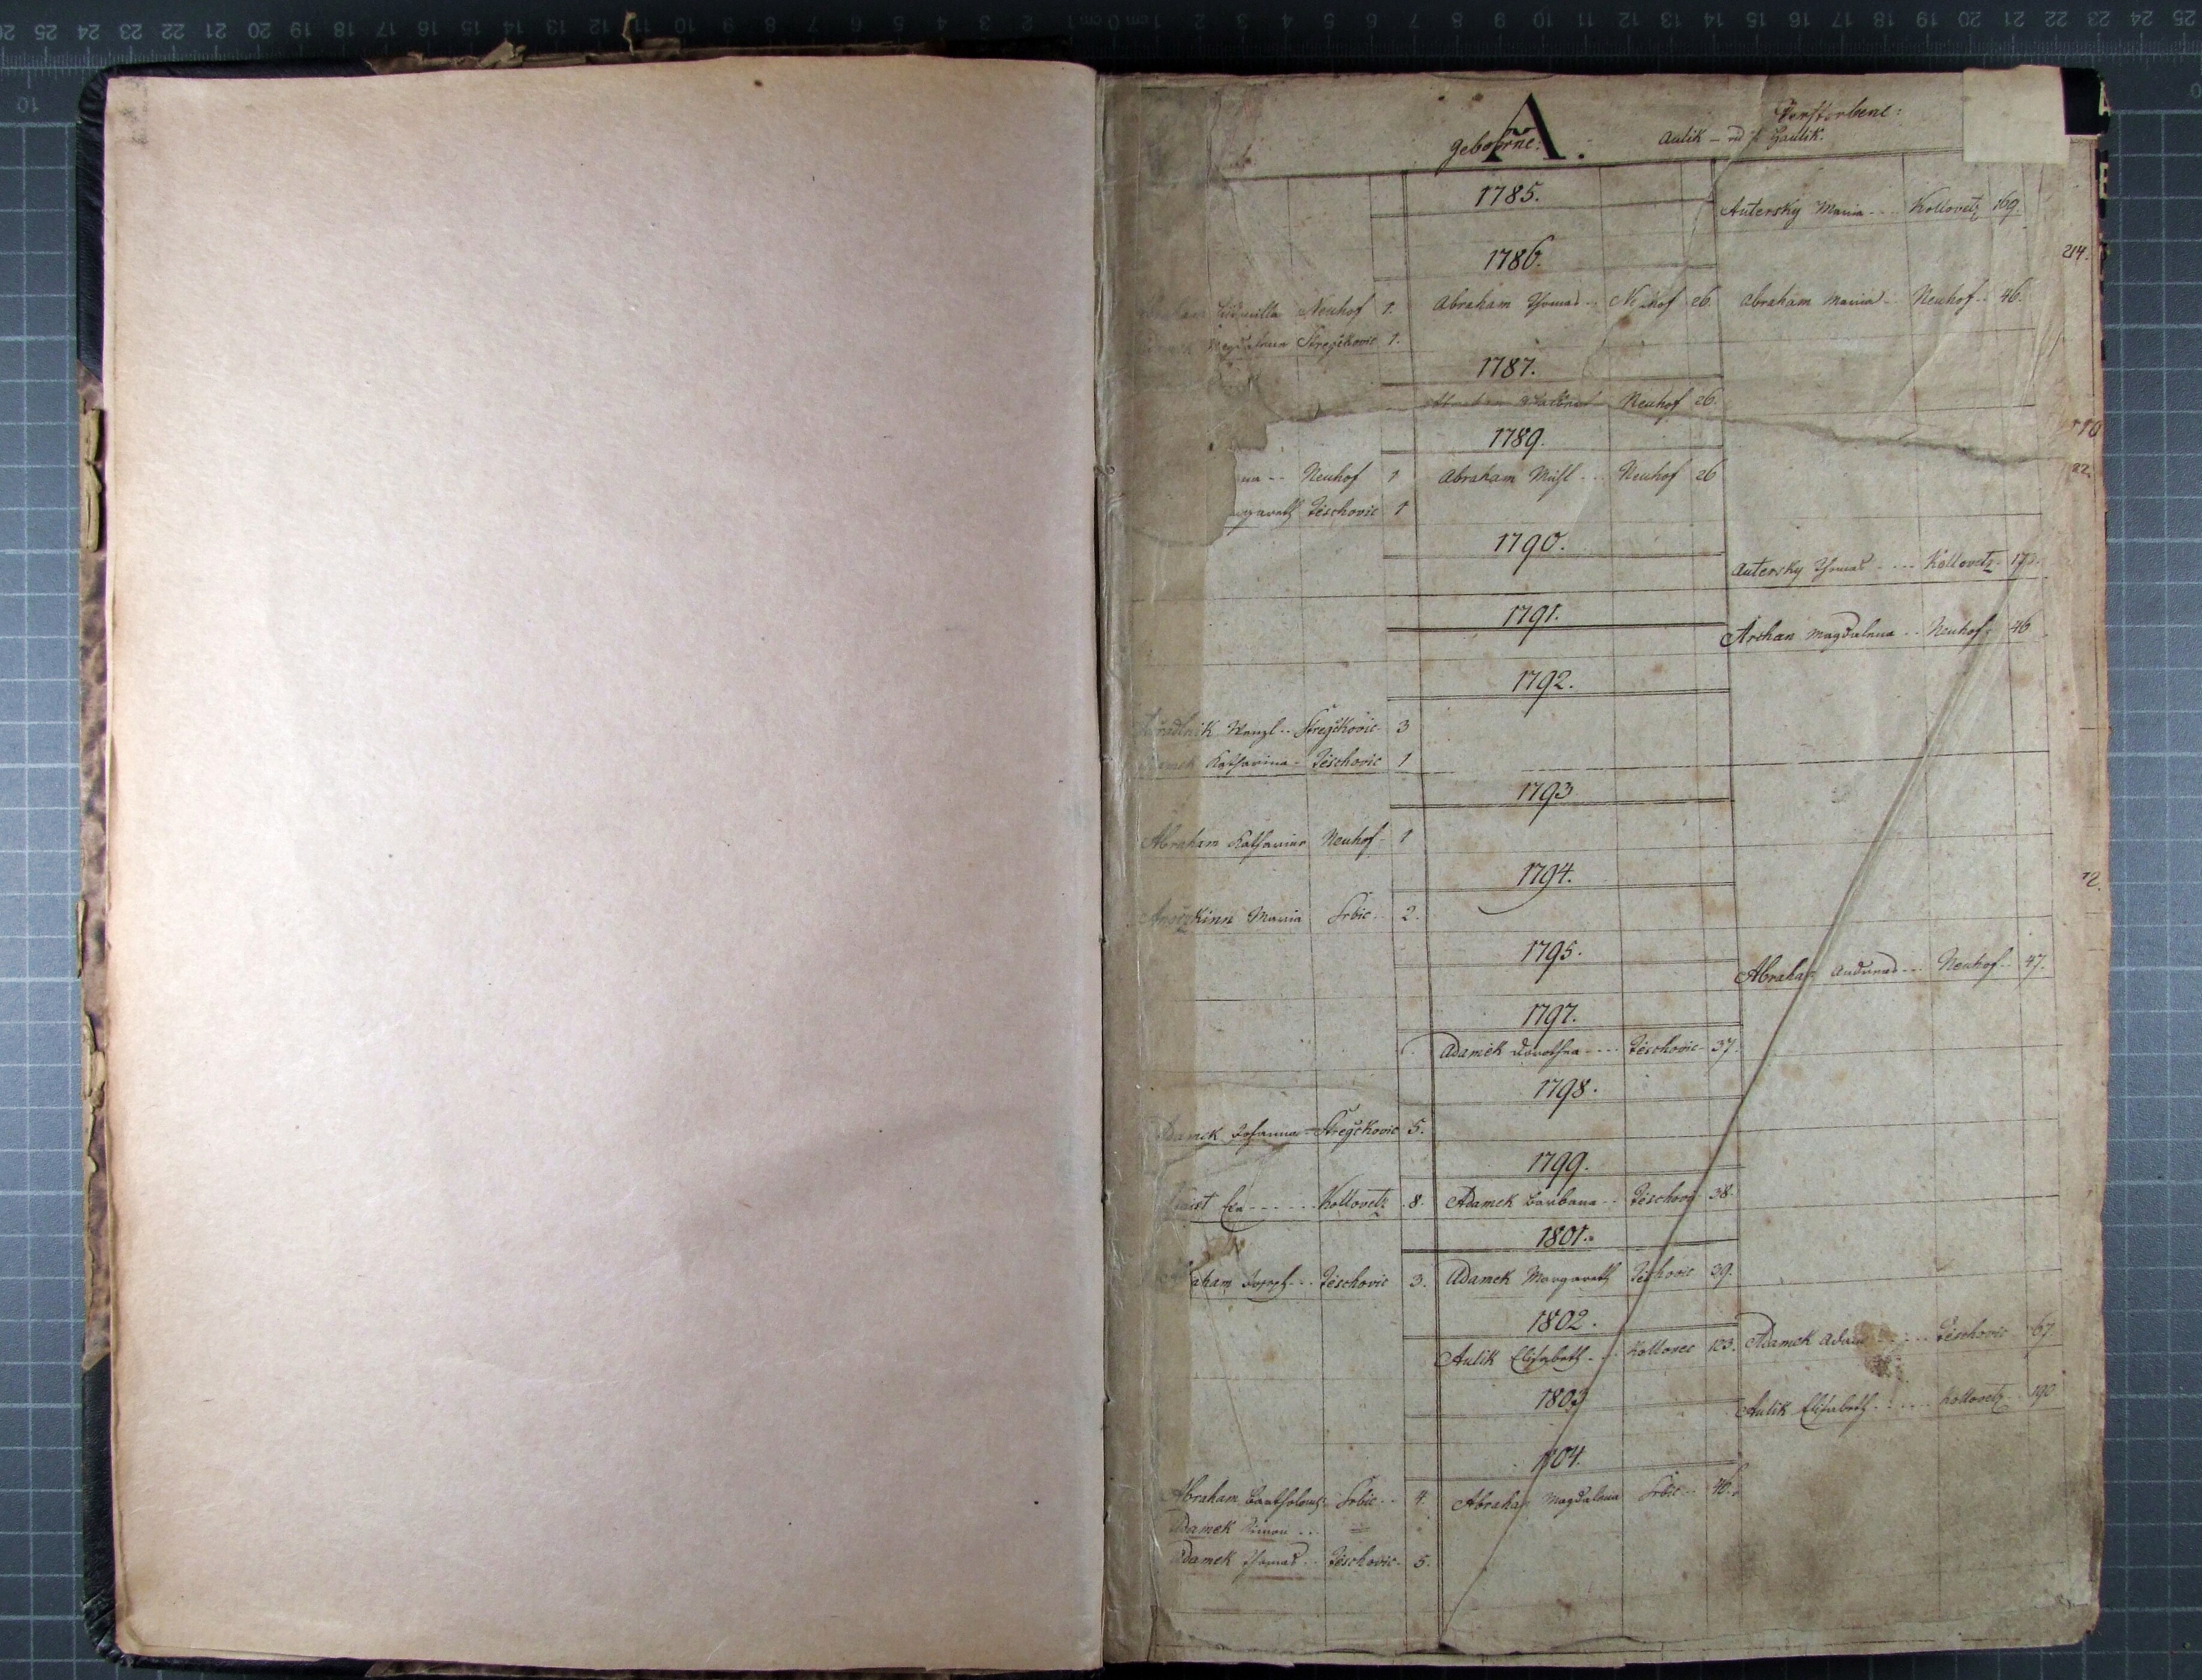 A.
Verstorbene:
Geborne:
Aulik — vid. Haulik.
1785.
Autersky Maria - - - Kollovetz 169.
1786.
214.
Ludmilla Neuhof 1. Abraham Thomas - - Neuhof 26 Abraham Maria - Neuhof - - 46.
Magdalena Stregčkovic 1.
1787.
Neuhof 26.
1789.
22.
Neuhof 1 Abraham Michl - - - Neuhof 26
Jeschovic 1
1790.
Autersky Thomas - - - Kollovetz
1791.
Archan Magdalena - - Neuhof - 46
1792.
Wenzl - - Stregčkovic - 3
Adamek Katharina - Jeschovic 1
1793
Abraham Katharina Neuhof - 1
1794.
12.
Maria Srbic - - 2.
1795.
Abraham Andreas - - - Neuhof - - 47.
1797.
Adamek Dorothea - - - - Jeschovic - 37.
1798.
Adamek Johanna - Stregčkovic 5.
1799.
Eva - - - - - - Kollovetz 8. Adamek Barbara - - Jeschovic 38.
1801.
Abraham Joseph - - - Jeschovic 3. Adamek Margareth Jeschovic 39.
1802.
Aulik Elisabeth - - - Kollovec 103. Adamek Adam - - - - Jeschovic 67
1803
Aulik Elisabeth - - - - - Kollovetz 190
1804.
Abraham Bartholom. Srbic - - 4. Abraham Magdalena Srbic - - 46.
Adamek Simon - - =
Adamek Thomas - - Jeschovic - 5.